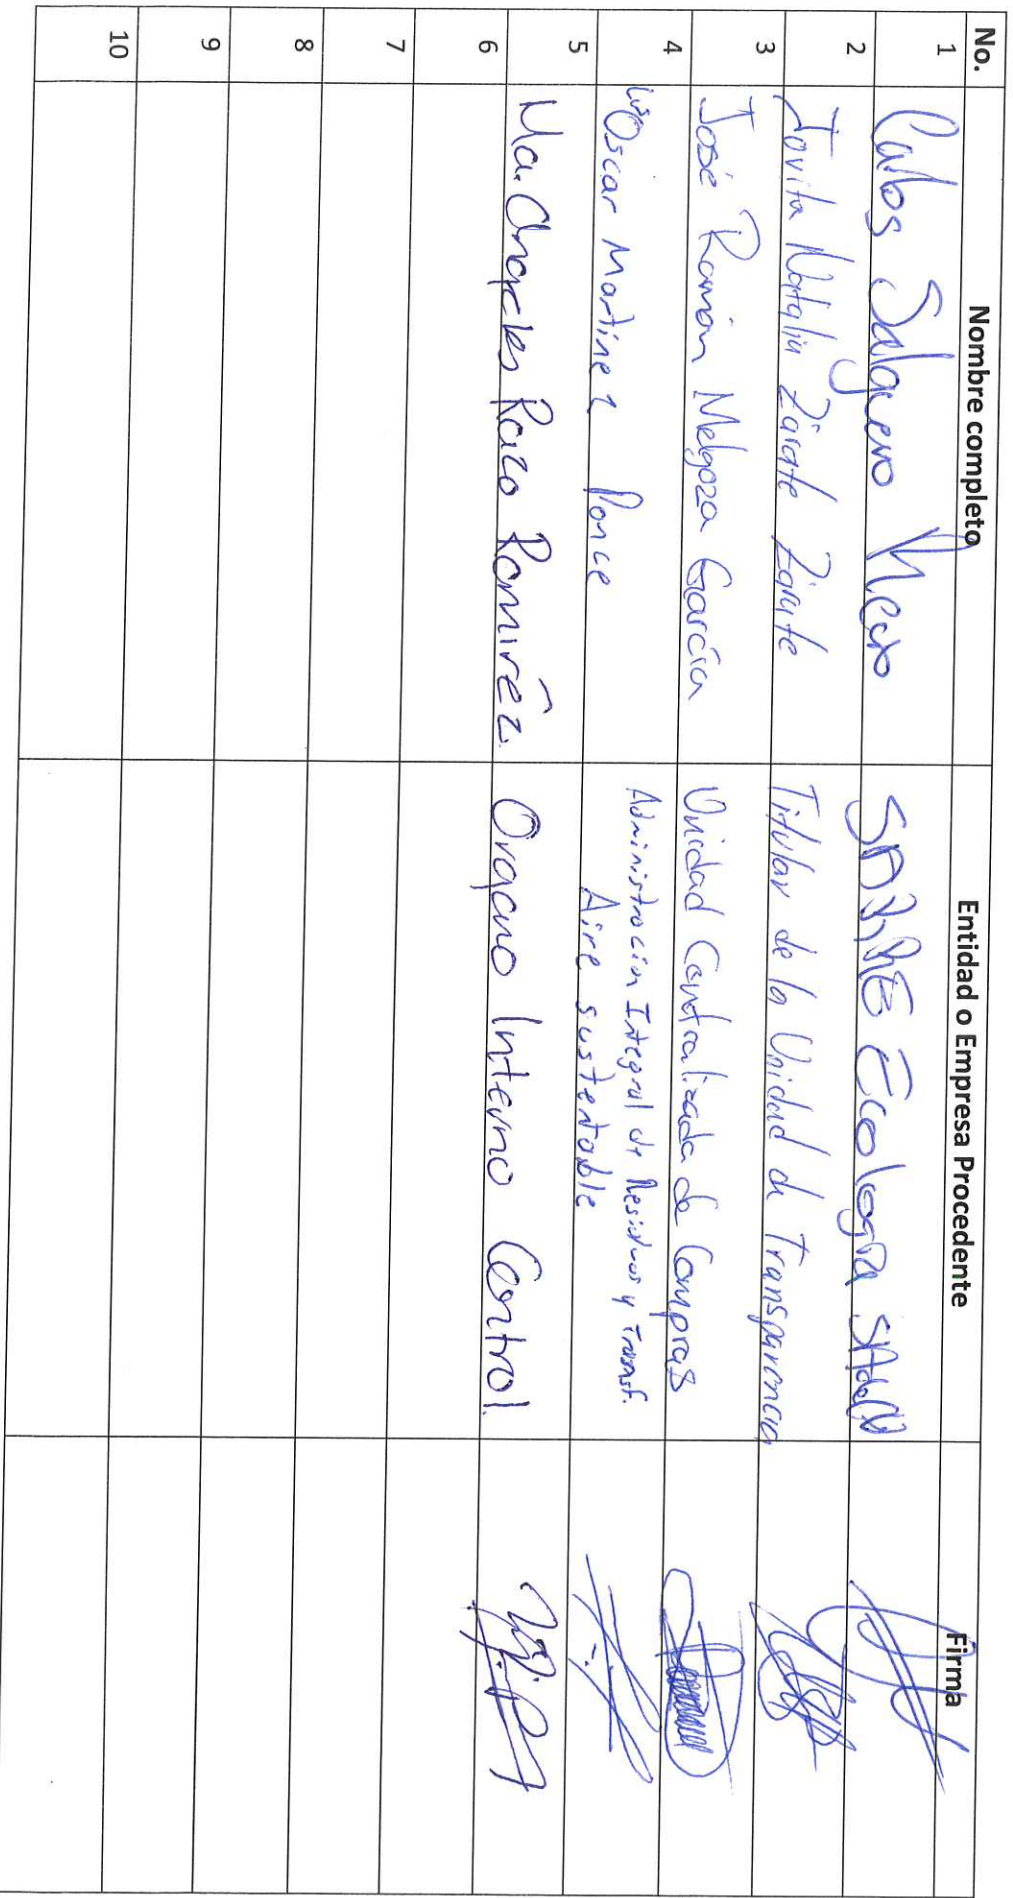 No. Nombre completo Entidad o Empresa Procedente Firma
1 Carlos Salguero Ecologia SA de CV
2 Jovita Natalia Zárate Zárate Titular de la Unidad de Transparencia
3 José Ramón Melgoza García Unidad Centralizada de Compras
4 Luis Oscar Martinez Ponce Administración Integral de Residuos y Transf.
Aire sustentable
5 Ma. Razo Ramírez. Organo Interno Control.
6
7
8
9
10